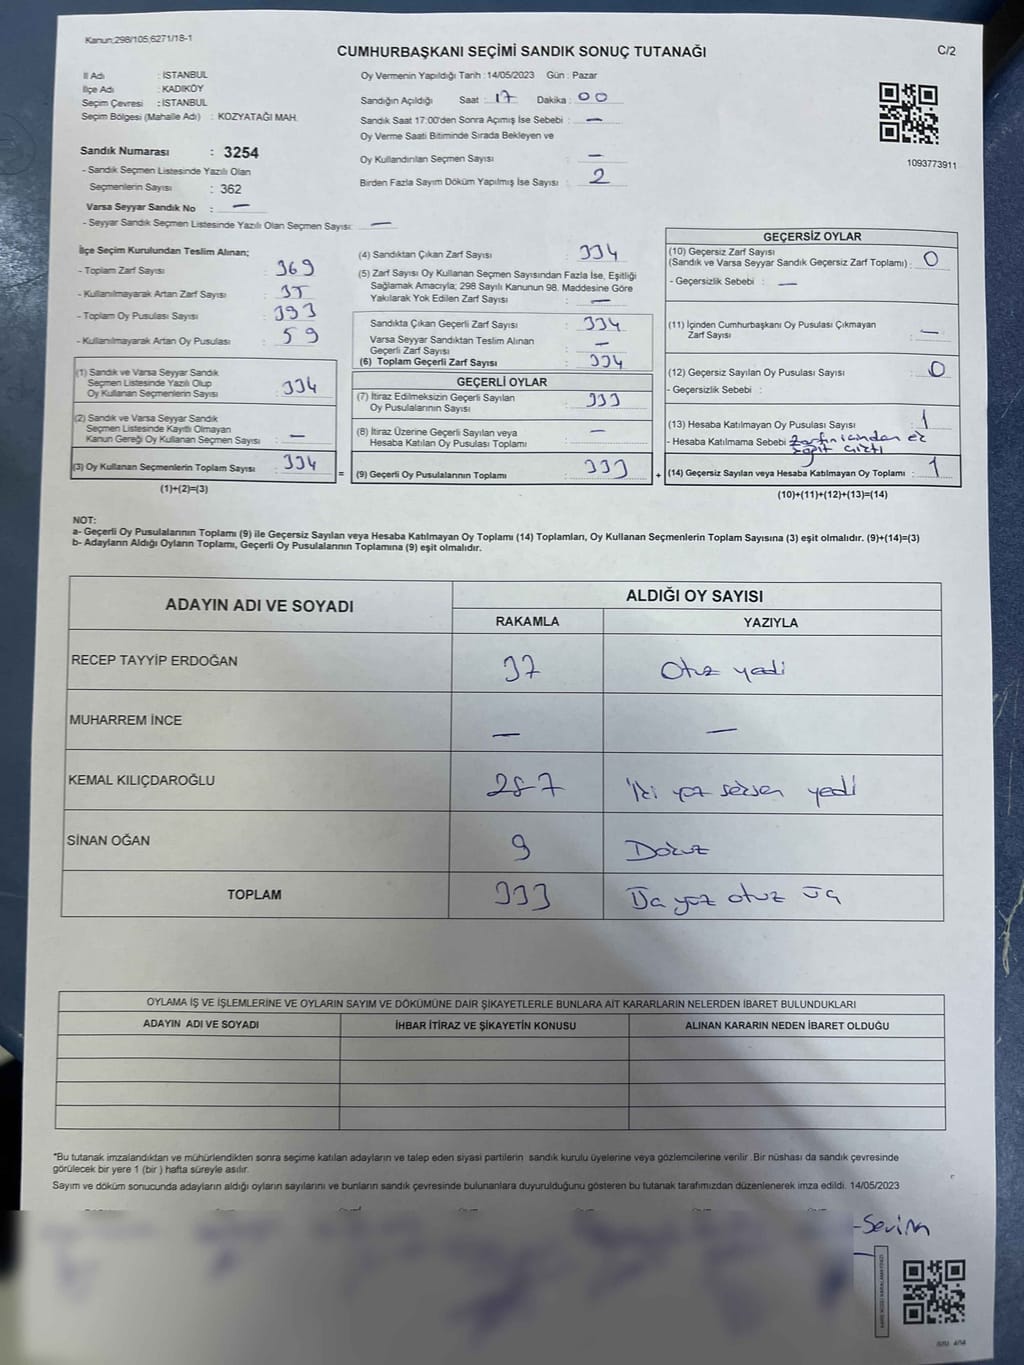 Kanun:298/105,6271/18-1
CUMHURBAŞKANI SEÇİMİ SANDIK SONUÇ TUTANAĞI
C/2
İl Adı : İSTANBUL
İlçe Adı : KADIKÖY
Seçim Çevresi : İSTANBUL
Seçim Bölgesi (Mahalle Adı) : KOZYATAĞI MAH.
Sandık Numarası : 3254
- Sandık Seçmen Listesinde Yazılı Olan
Seçmenlerin Sayısı : 362
Varsa Seyyar Sandık No : —
- Seyyar Sandık Seçmen Listesinde Yazılı Olan Seçmen Sayısı: —
Oy Vermenin Yapıldığı Tarih : 14/05/2023 Gün : Pazar
Sandığın Açıldığı Saat : 17 Dakika : 00
Sandık Saat 17:00'den Sonra Açımış İse Sebebi : —
Oy Verme Saati Bitiminde Sırada Bekleyen ve
Oy Kullandırılan Seçmen Sayısı : —
Birden Fazla Sayım Döküm Yapılmış İse Sayısı : 2
1093773911
İlçe Seçim Kurulundan Teslim Alınan;
- Toplam Zarf Sayısı : 369
- Kullanılmayarak Artan Zarf Sayısı : 35
- Toplam Oy Pusulası Sayısı : 393
- Kullanılmayarak Artan Oy Pusulası : 59
(1) Sandık ve Varsa Seyyar Sandık
Seçmen Listesinde Yazılı Olup
Oy Kullanan Seçmenlerin Sayısı : 334
(2) Sandık ve Varsa Seyyar Sandık
Seçmen Listesinde Kayıtlı Olmayan
Kanun Gereği Oy Kullanan Seçmen Sayısı : —
(3) Oy Kullanan Seçmenlerin Toplam Sayısı : 334
(1)+(2)=(3)
(4) Sandıktan Çıkan Zarf Sayısı : 334
(5) Zarf Sayısı Oy Kullanan Seçmen Sayısından Fazla İse, Eşitliği
Sağlamak Amacıyla; 298 Sayılı Kanunun 98. Maddesine Göre
Yakılarak Yok Edilen Zarf Sayısı : —
Sandıkta Çıkan Geçerli Zarf Sayısı : 334
Varsa Seyyar Sandıktan Teslim Alınan
Geçerli Zarf Sayısı : —
(6) Toplam Geçerli Zarf Sayısı : 334
GEÇERLİ OYLAR
(7) İtiraz Edilmeksizin Geçerli Sayılan
Oy Pusulalarının Sayısı : 333
(8) İtiraz Üzerine Geçerli Sayılan veya
Hesaba Katılan Oy Pusulası Toplamı : —
= (9) Geçerli Oy Pusulalarının Toplamı : 333
GEÇERSİZ OYLAR
(10) Geçersiz Zarf Sayısı
(Sandık ve Varsa Seyyar Sandık Geçersiz Zarf Toplamı) : 0
- Geçersizlik Sebebi : —
(11) İçinden Cumhurbaşkanı Oy Pusulası Çıkmayan
Zarf Sayısı : —
(12) Geçersiz Sayılan Oy Pusulası Sayısı : 0
- Geçersizlik Sebebi :
(13) Hesaba Katılmayan Oy Pusulası Sayısı : 1
- Hesaba Katılmama Sebebi : Zarfın içinden
çıktı
+ (14) Geçersiz Sayılan veya Hesaba Katılmayan Oy Toplamı : 1
(10)+(11)+(12)+(13)=(14)
NOT:
a- Geçerli Oy Pusulalarının Toplamı (9) ile Geçersiz Sayılan veya Hesaba Katılmayan Oy Toplamı (14) Toplamları, Oy Kullanan Seçmenlerin Toplam Sayısına (3) eşit olmalıdır. (9)+(14)=(3)
b- Adayların Aldığı Oyların Toplamı, Geçerli Oy Pusulalarının Toplamına (9) eşit olmalıdır.
ADAYIN ADI VE SOYADI
ALDIĞI OY SAYISI
RAKAMLA YAZIYLA
RECEP TAYYİP ERDOĞAN 37 Otuz yedi
MUHARREM İNCE — —
KEMAL KILIÇDAROĞLU 287 iki yüz seksen yedi
SİNAN OĞAN 9 Dokuz
TOPLAM 333 Üç yüz otuz üç
OYLAMA İŞ VE İŞLEMLERİNE VE OYLARIN SAYIM VE DÖKÜMÜNE DAİR ŞİKAYETLERLE BUNLARA AİT KARARLARIN NELERDEN İBARET BULUNDUKLARI
ADAYIN ADI VE SOYADI İHBAR İTİRAZ VE ŞİKAYETİN KONUSU ALINAN KARARIN NEDEN İBARET OLDUĞU
"Bu tutanak imzalandıktan ve mühürlendikten sonra seçime katılan adayların ve talep eden siyasi partilerin sandık kurulu üyelerine veya gözlemcilerine verilir .Bir nüshası da sandık çevresinde
görülecek bir yere 1 (bir ) hafta süreyle asılır.
Sayım ve döküm sonucunda adayların aldığı oyların sayılarını ve bunların sandık çevresinde bulunanlara duyurulduğunu gösteren bu tutanak tarafımızdan düzenlenerek imza edildi. 14/05/2023
-Sevim